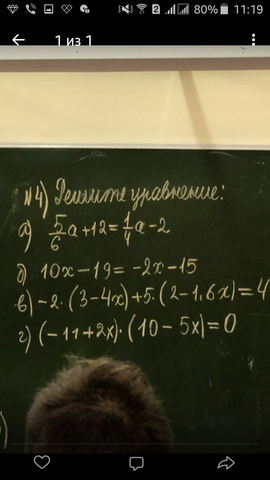 80% 11:19
1 из 1
№4) Решите уравнение:
а) 5/6 а + 12 = 1/4 а - 2
б) 10x - 19 = -2x - 15
в) -2·(3-4x)+5·(2-1,6x)=4
г) (-11+2x)·(10-5x)=0